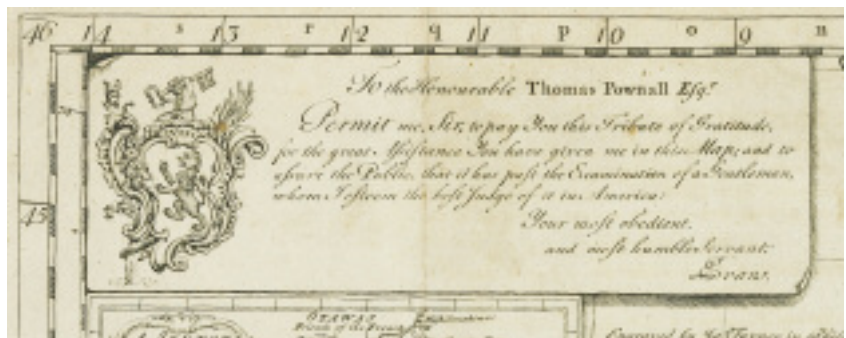 46 14 s 13 r 12 q 11 p 10 o 9 n
To the Honourable Thomas Pownall Esqr.
Permit me, Sir, to pay You this Tribute of Gratitude,
for the great Assistance You have given me in this Map; and to
assure the Public, that it has past the Examination of a Gentleman,
whom I esteem the best Judge of it in America:
Your most obedient,
and most humble Servant,
Evans.
45
OTAWAS
Engraved by Jas Turner in